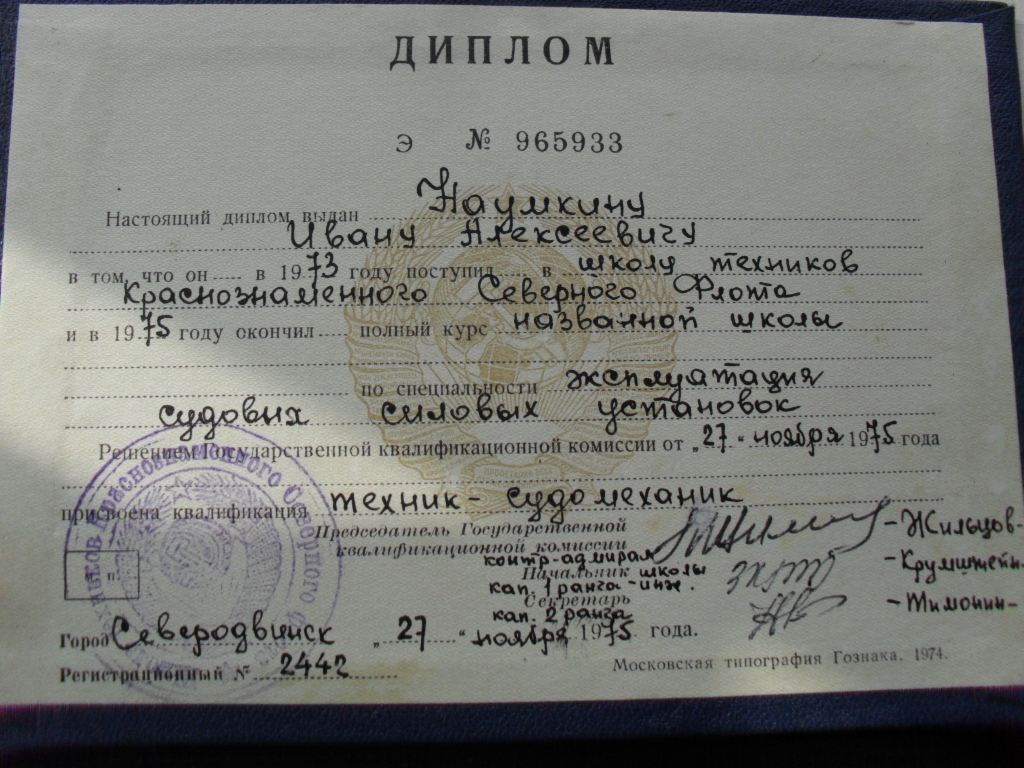 ДИПЛОМ
Э № 965933
Настоящий диплом выдан Наумкину
Ивану Алексеевичу
в том, что он в 1973 году поступил в школу техников
Краснознаменного Северного Флота
и в 1975 году окончил полный курс названной школы
по специальности эксплуатация
судовых силовых установок
Решением Государственной квалификационной комиссии от „27“ ноября 1975 года
присвоена квалификация техник-судомеханик
Председатель Государственной
квалификационной комиссии
контр-адмирал -Жильцов-
Начальник школы
кап. 1 ранга-инж. -Крумштейн-
Секретарь
кап. 2 ранга -Тимонин-
Город Северодвинск „27“ ноября 1975 года.
Регистрационный № 2442
Московская типография Гознака. 1974.
Краснознаменного Северного